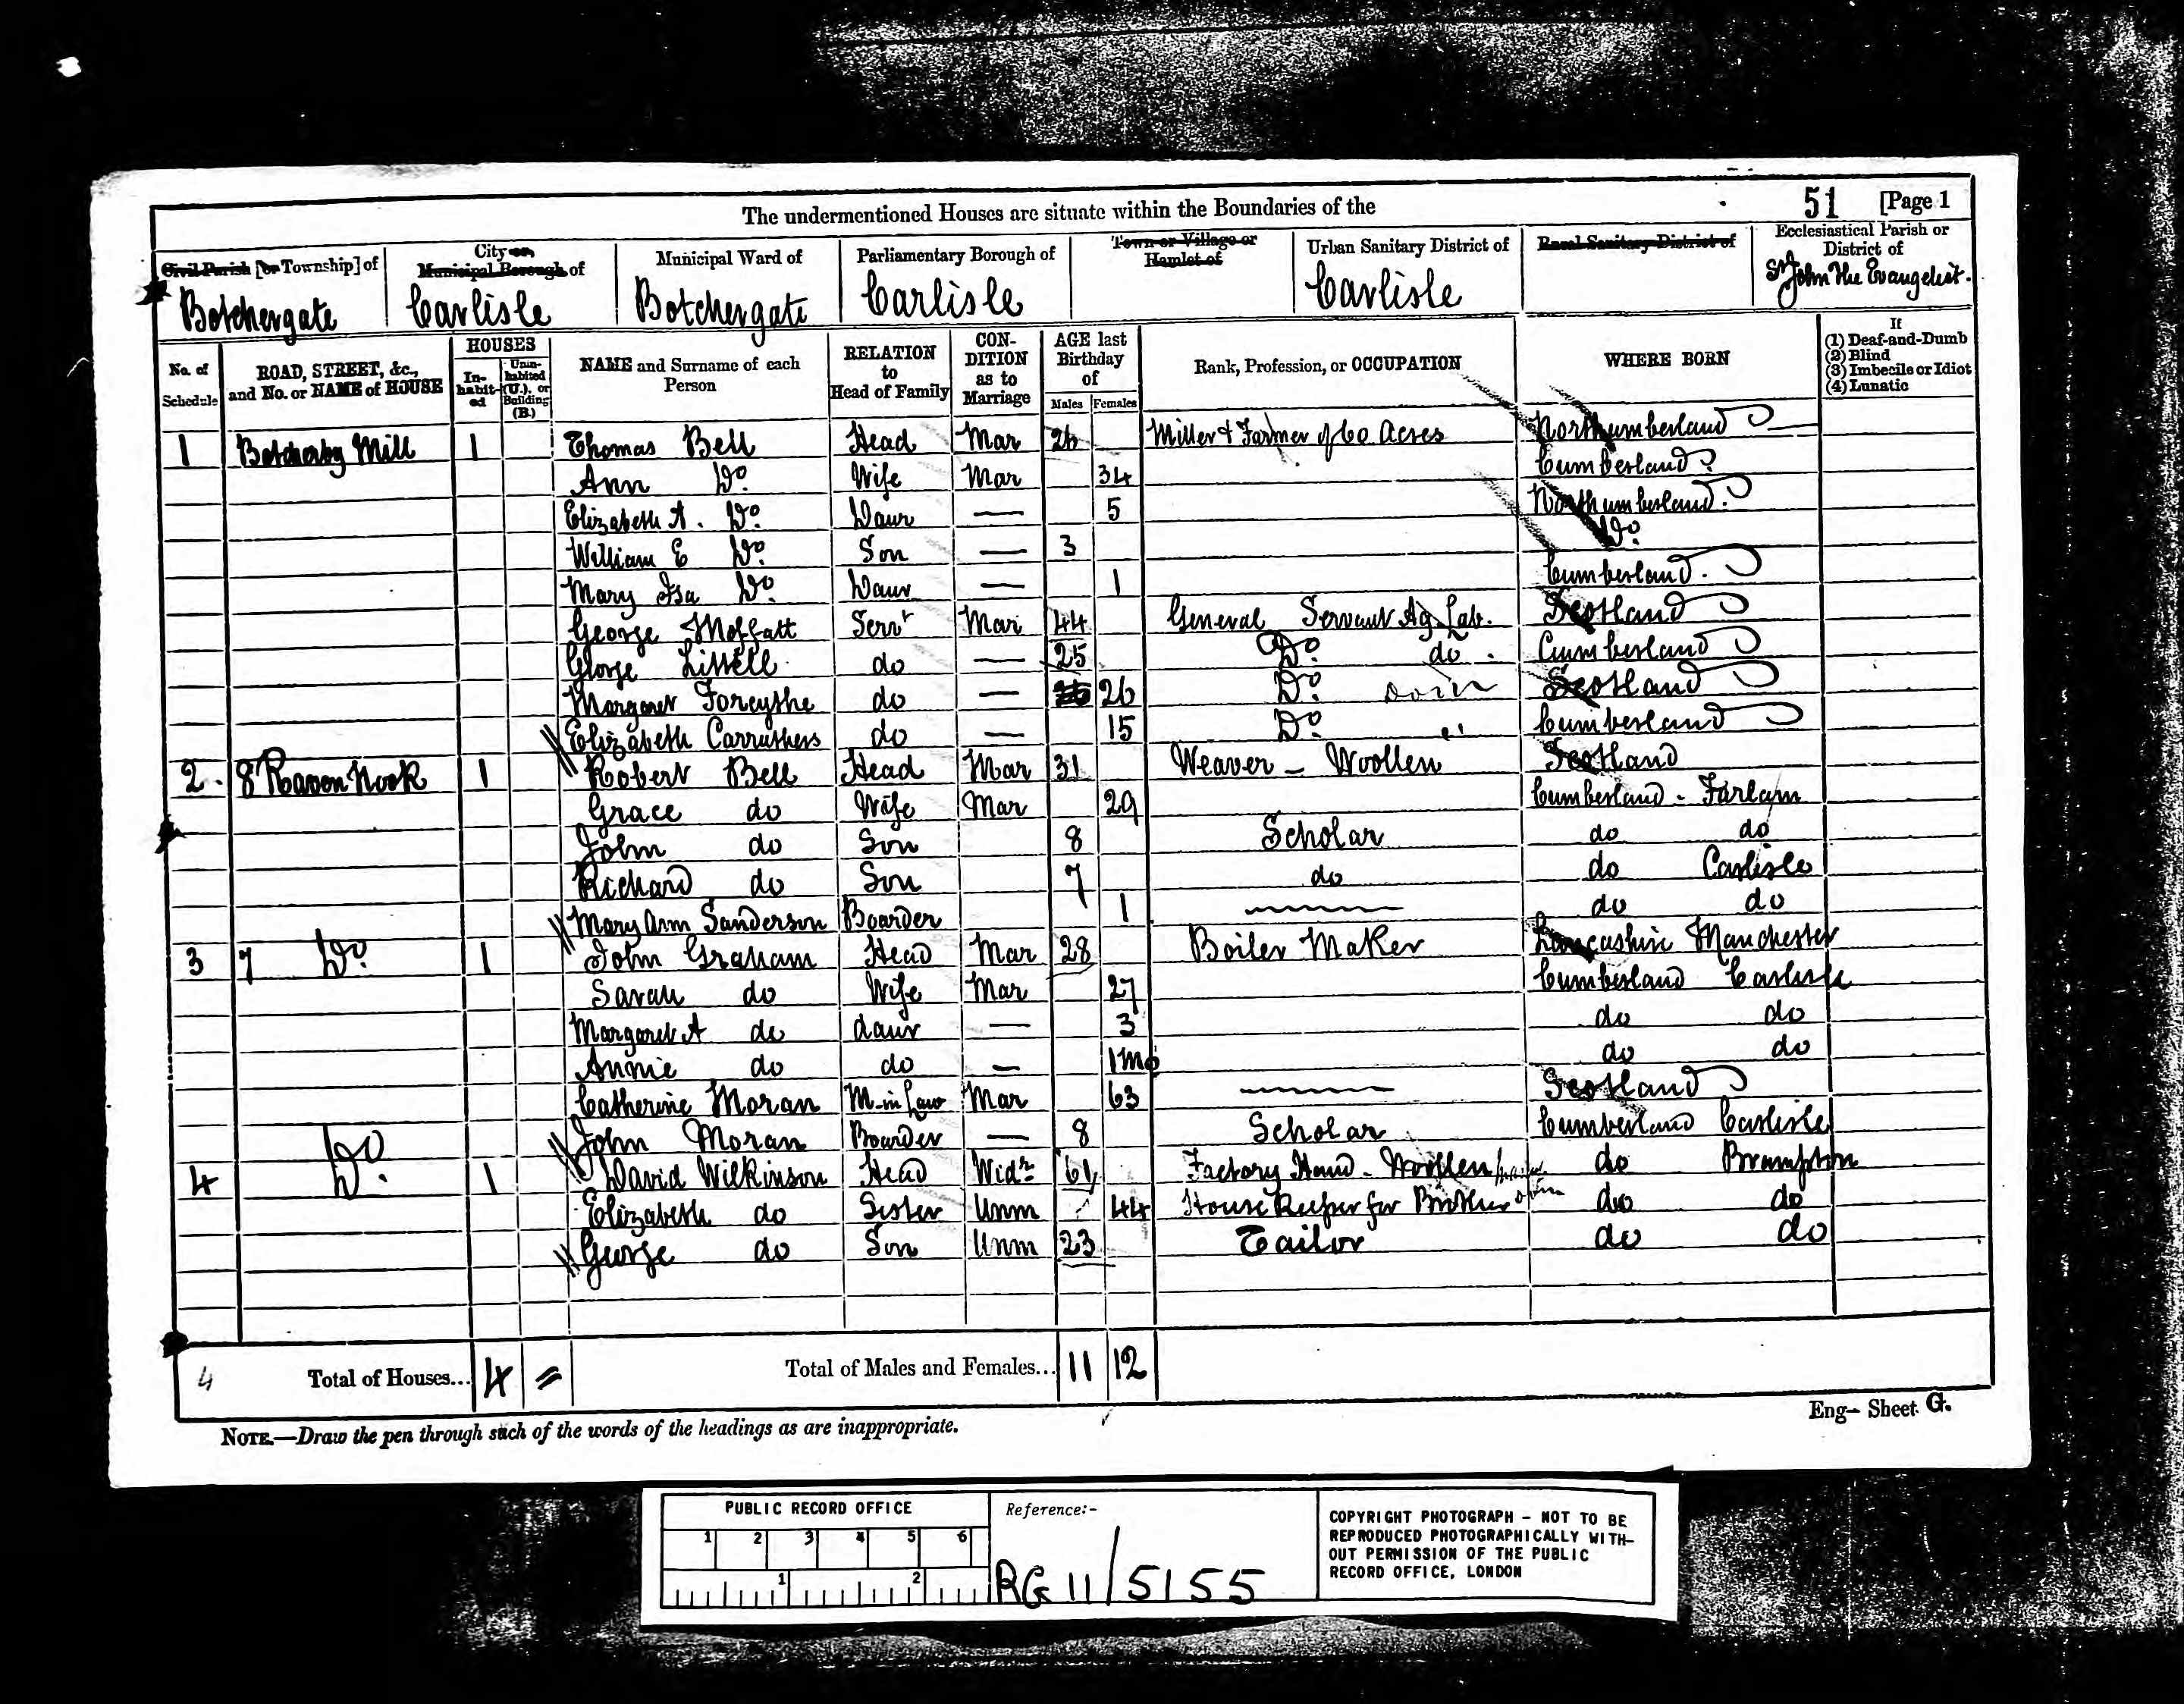 The undermentioned Houses are situate within the Boundaries of the 51 [Page 1
Civil Parish [or Township] of
Botchergate
City or Municipal Borough of
Carlisle
Municipal Ward of
Botchergate
Parliamentary Borough of
Carlisle
Town or Village or Hamlet of
Urban Sanitary District of
Carlisle
Rural Sanitary District of
Ecclesiastical Parish or District of
St John The Evangelist.
No. of Schedule
ROAD, STREET, &c., and No. or NAME of HOUSE
HOUSES
In-habit-ed
Unin-habited (U.), or Building (B.)
NAME and Surname of each Person
RELATION to Head of Family
CON-DITION as to Marriage
AGE last Birthday of
Males Females
Rank, Profession, or OCCUPATION
WHERE BORN
If
(1) Deaf-and-Dumb
(2) Blind
(3) Imbecile or Idiot
(4) Lunatic
1 Botcherby Mill 1 Thomas Bell Head Mar 26 Miller & Farmer of 60 Acres Northumberland
Ann Do. Wife Mar 34 Cumberland
Elizabeth A. Do. Daur — 5 Northumberland
William E Do. Son — 3 Do.
Mary Isa Do. Daur — 1 Cumberland.
George Moffatt Servt Mar 44 General Servant Ag. Lab. Scotland
George do — 25 Do. do. Cumberland
Margaret Forcythe do — 26 Do. Scotland
Elizabeth Carruthers do — 15 Do. Cumberland
2. 8 Raven Nook 1 Robert Bell Head Mar 31 Weaver - Woollen Scotland
Grace do Wife Mar 29 Cumberland - Farlam
John do Son 8 Scholar do do
Richard do Son 7 do do Carlisle
Mary Ann Sanderson Boarder 1 do do
3 7 Do. 1 John Graham Head Mar 28 Boiler Maker Lancashire Manchester
Sarah do Wife Mar 27 Cumberland Carlisle
Margaret A do daur — 3 do do
Annie do do — 1 mo do do
Catherine Moran M-in Law Mar 63 Scotland
John Moran Boarder — 8 Scholar Cumberland Carlisle
4 Do. 1 David Wilkinson Head Widr 61 Factory Hand - Woollen do Brampton
Elizabeth do Sister Unm 44 House Keeper for Brother do do
George do Son Unm 23 Tailor do do
4 Total of Houses... 4 = Total of Males and Females... 11 12
NOTE.—Draw the pen through such of the words of the headings as are inappropriate.
Eng— Sheet G.
PUBLIC RECORD OFFICE
1 2 3 4 5 6
1 2
Reference:-
RG 11/5155
COPYRIGHT PHOTOGRAPH - NOT TO BE
REPRODUCED PHOTOGRAPHICALLY WITH-
OUT PERMISSION OF THE PUBLIC
RECORD OFFICE, LONDON